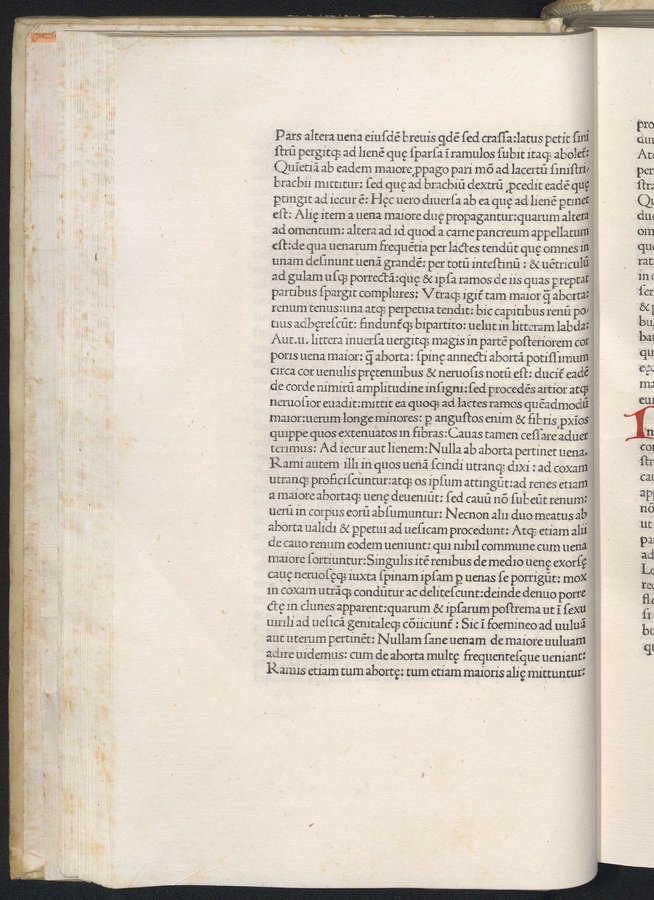 Pars altera uena eiusdē brevis qdē sed crassa:latus petit sini
strū pergitq; ad lienē quę sparsa ī ramulos subit itaq; abolet̄:
Quīetiā ab eadem maiore ,ppago pari mō ad lacertū sinistri,
brachii mittitur: sed quę ad brachiū dextrū ,pcedit eadē quę
ptingit ad iecur ē: Hęc uero diuersa ab ea quę ad lienē ptinet
est: Alię item a uena maiore duę propagantur:quarum altera
ad omentum: altera ad id quod a carne pancreum appellatum
est:de qua uenarum frequētia per lactes tendūt quę omnes in
unam desinunt uenā grandē: per totū intestinū : & uētriculū
ad gulam usq; porrectā:quę & ipsa ramos de iis quas pręptat
partibus spargit complures: Vtraq; igit̄ tam maior q̄ aborta:
renum tenus:una atq; perpetua tendit: hic capitibus renū po/
tius adhęrescūt: findunt̄q; bipartito: uelut in litteram labda:
Aut.u. littera inuersa uergitq; magis in partē posteriorem cor
poris uena maior: q̄ aborta: spinę annecti abortā potissimum
circa cor uenulis prętenuibus & neruosis notū est: ducit̄ eadē
de corde nimirū amplitudine insigni:sed procedēs artior atq;
neruosior euadit:mittit ea quoq; ad lactes ramos quēadmodū
maior:uerum longe minores: p angustos enim & fibris pxīos
quippe quos extenuatos in fibras:Cauas tamen cessare aduer
terimus: Ad iecur aut lienem:Nulla ab aborta pertinet uena.
Rami autem illi in quos uenā scindi utranq; dixi : ad coxam
utranq; proficiscuntur:atq; os ipsum attingūt:ad renes etiam
a maiore abortaq; uenę deueniūt: sed cauū nō subeūt renum:
uerū in corpus eorū absumuntur: Necnon alii duo meatus ab
aborta ualidi & ppetui ad uesicam procedunt: Atq; etiam alii
de cauo renum eodem ueniunt: qui nihil commune cum uena
maiore sortiuntur:Singulis itē renibus de medio uenę exorsę
cauę neruosęq; iuxta spinam ipsam p uenas se porrigūt: mox
in coxam utrāq; condūtur ac delitescunt:deinde denuo porre
ctę in clunes apparent:quarum & ipsarum postrema ut ī sexu
uirili ad uesicā genitaleq; cōiiciunt̄ : Sic ī foemineo ad uuluā
aut uterum pertinēt: Nullam sane uenam de maiore uuluam
adire uidemus: cum de aborta multę frequentesque ueniant:
Ramis etiam tum abortę: tum etiam maioris alię mittuntur: